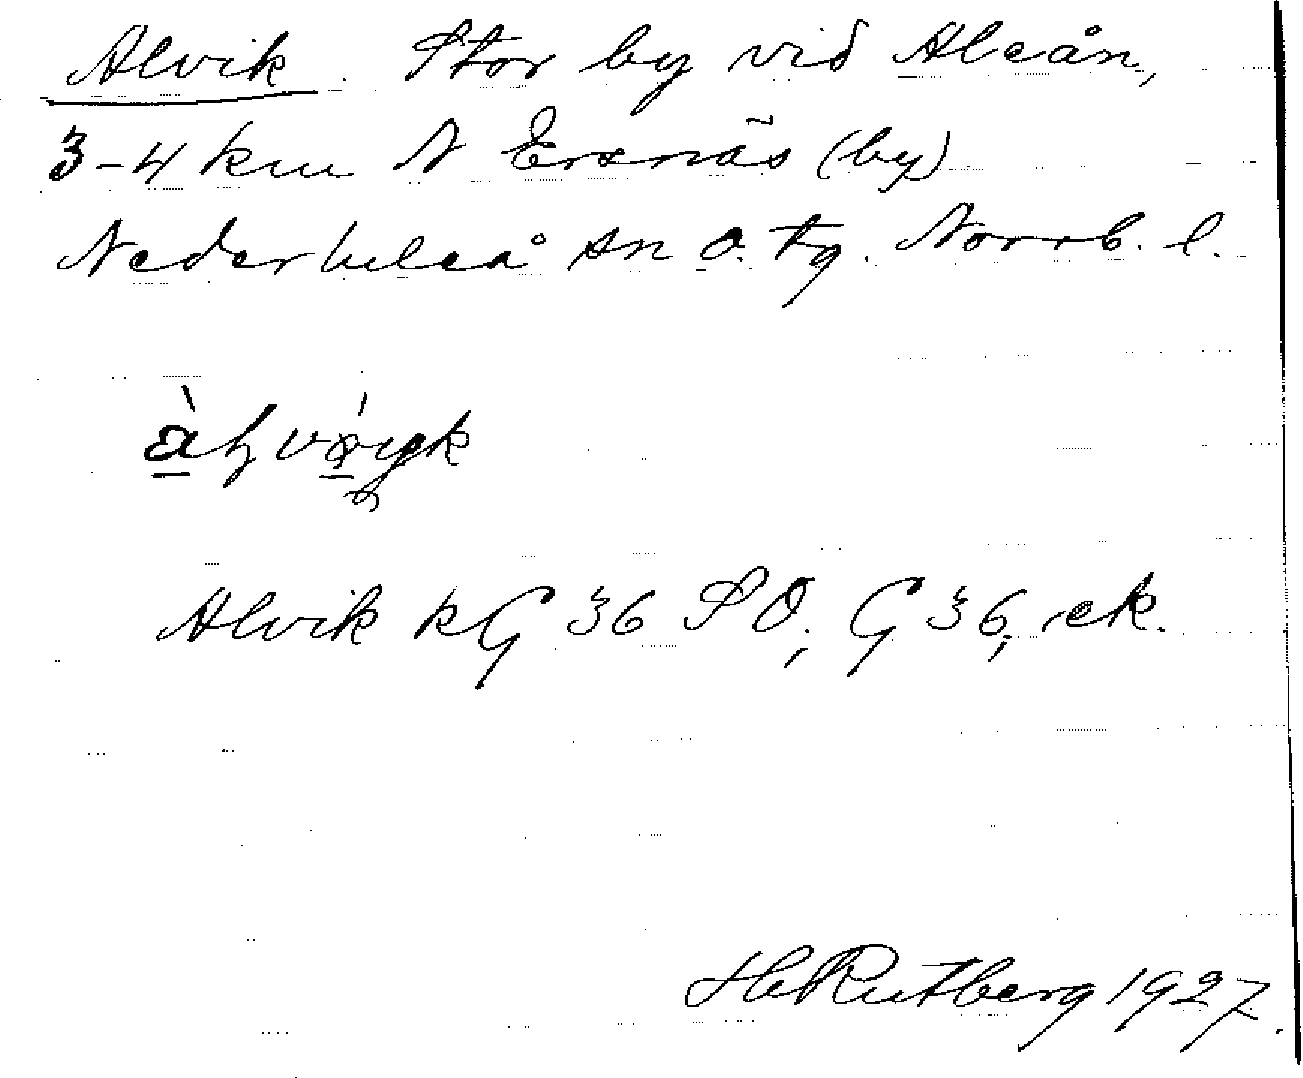 Alvik. Stor by vid Aleån,
3-4 km N Ersnäs (by)
Nederluleå sn o. tg. Norrb. l.
Alvik kG 36 SO; G 36, ek.
H Rutberg 1927.